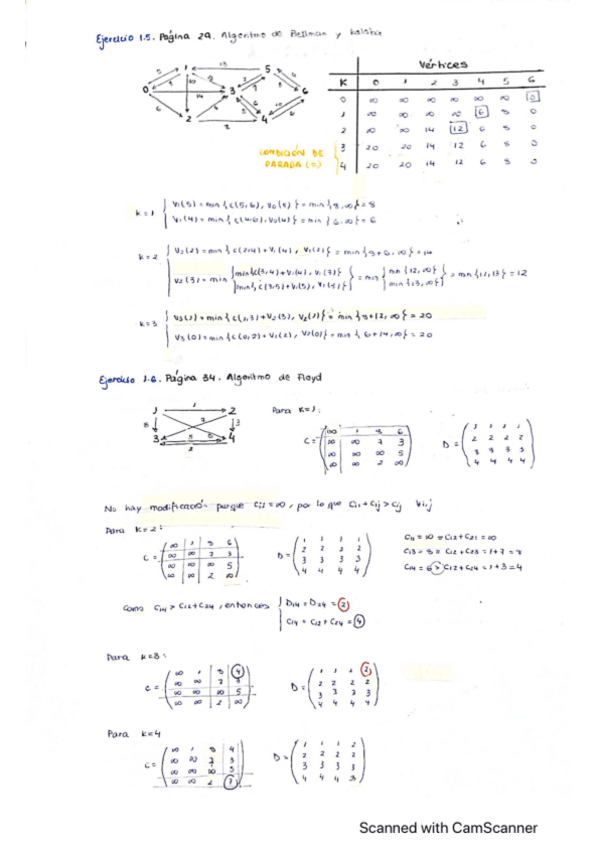 Ejercicio 1.5. Página 29. Algoritmo de Bellman y Kalaba
Vértices
K 0 1 2 3 4 5 6
0 ∞ ∞ ∞ ∞ ∞ ∞ 0
1 ∞ ∞ ∞ ∞ 6 8 0
2 ∞ ∞ 14 12 6 8 0
3 20 20 14 12 6 8 0
4 20 20 14 12 6 8 0
CONDICIÓN DE
PARADA (=)
k=1 V₁(5) = min{c(5,6), V₀(5)} = min{8,∞} = 8
V₁(4) = min{c(4,6), V₀(4)} = min{6,∞} = 6
k=2 V₂(2) = min{c(2,4)+V₁(4), V₁(2)} = min{8+6,∞} = 14
V₂(3) = min {min{c(3,4)+V₁(4), V₁(3)} = min {min{12,∞} = min{12,13} = 12
min{c(3,5)+V₁(5), V₁(3)} min{13,∞}
k=3 V₃(1) = min{c(1,3)+V₂(3), V₂(1)} = min{8+12,∞} = 20
V₃(0) = min{c(0,2)+V₂(2), V₂(0)} = min{6+14,∞} = 20
Ejercicio 1.6. Página 34. Algoritmo de Floyd
Para K=1:
C = D =
∞ 1 8 6 1 1 1 1
∞ ∞ 7 3 2 2 2 2
∞ ∞ ∞ 5 3 3 3 3
∞ ∞ 2 ∞ 4 4 4 4
No hay modificación porque Ci1=∞, por lo que Ci1+C1j>Cij ∀i,j
Para K=2:
C = D =
∞ 1 8 6 1 1 1 1
∞ ∞ 7 3 2 2 2 2
∞ ∞ ∞ 5 3 3 3 3
∞ ∞ 2 ∞ 4 4 4 4
C11 = ∞ = C12+C21 = ∞
C13 = 8 = C12+C23 = 1+7 = 8
C14 = 6 > C12+C24 = 1+3 = 4
Como C14 > C12+C24, entonces D14 = D24 = 2
C14 = C12+C24 = 4
Para K=3:
C = D =
∞ 1 8 4 1 1 1 2
∞ ∞ 7 3 2 2 2 2
∞ ∞ ∞ 5 3 3 3 3
∞ ∞ 2 ∞ 4 4 4 4
Para K=4
C = D =
∞ 1 8 4 1 1 1 2
∞ ∞ 7 3 2 2 2 2
∞ ∞ ∞ 5 3 3 3 3
∞ ∞ 2 7 4 4 4 3
Scanned with CamScanner